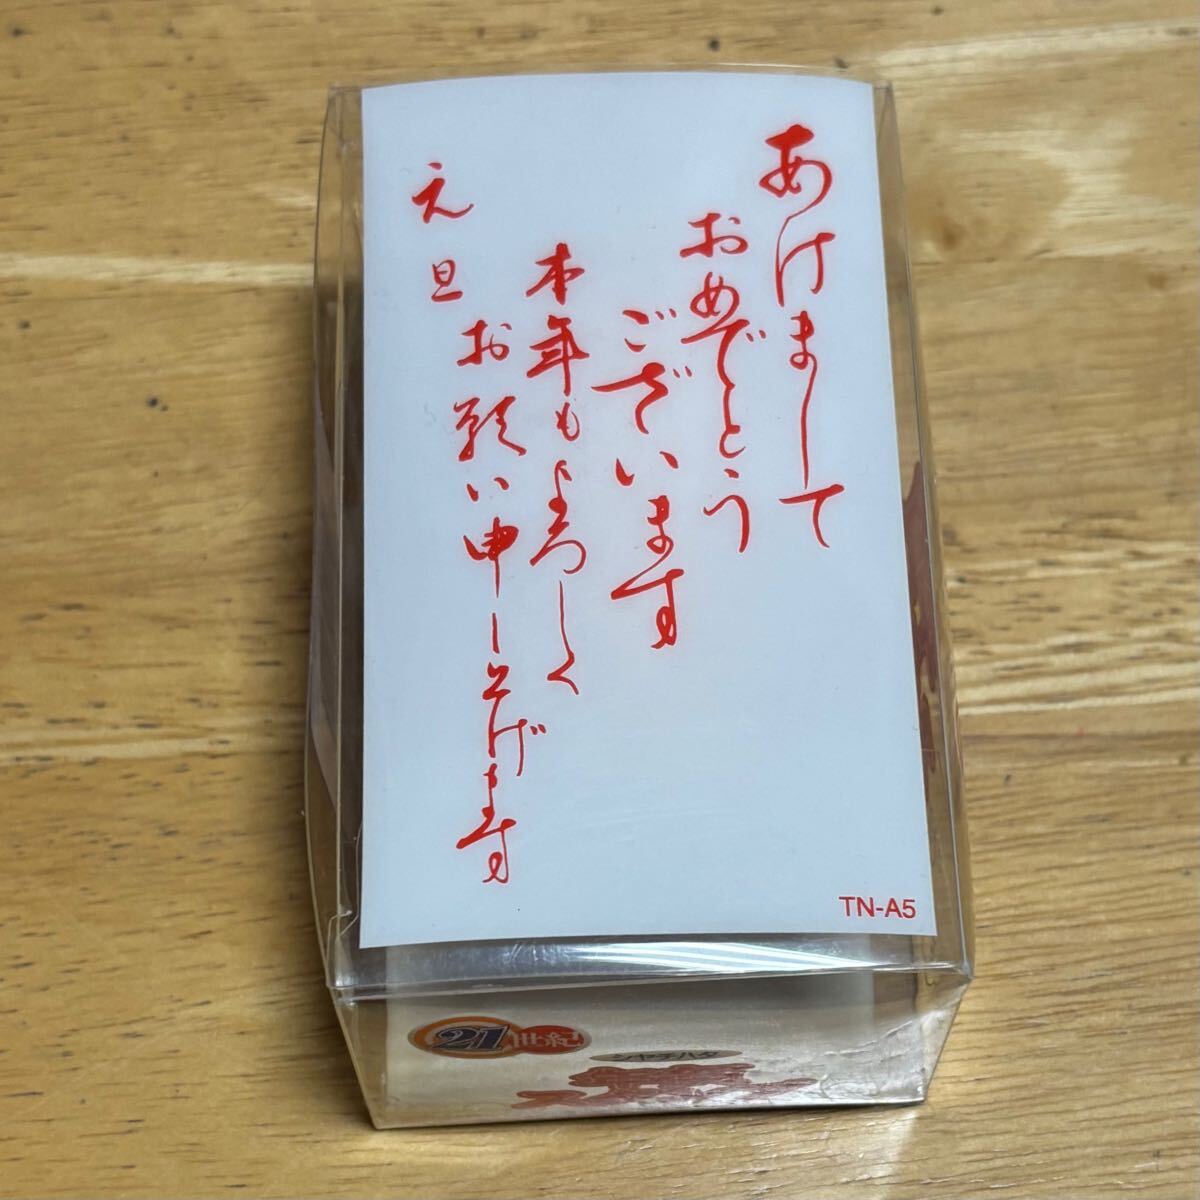 あけまして
おめでとう
ございます
本年もよろしく
お願い申し上げます
元旦
TN-A5
21世紀
シヤチハタ